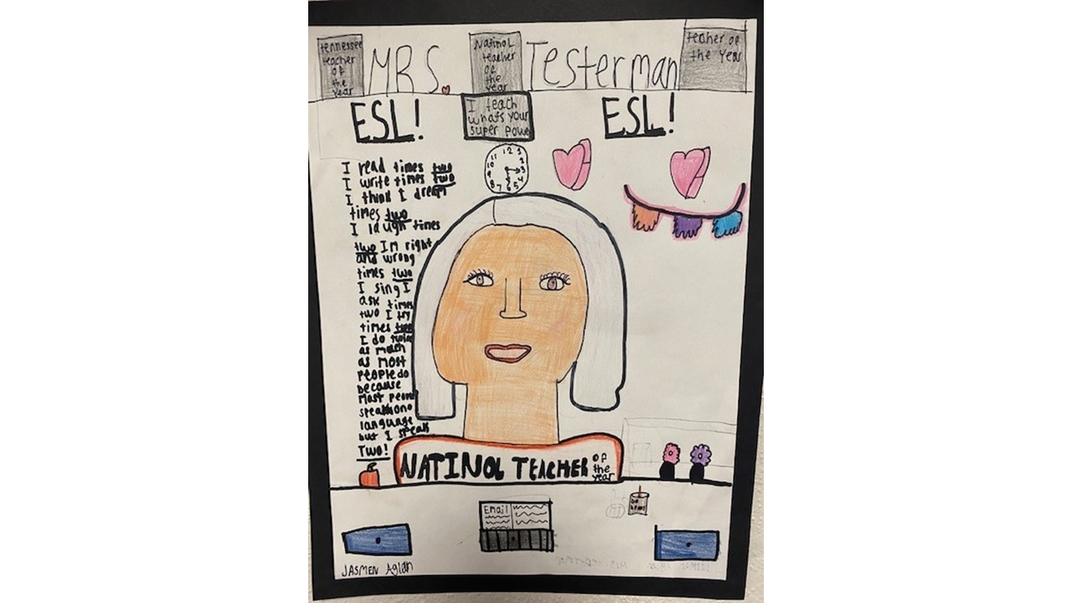 Tennessee
teacher
of
the
year
MRS.
National
teacher
of
the
year
Testerman
teacher of
the Year
ESL!
I teach
whats your
super power
ESL!
12
11 1
10 2
9 3
8 4
7 6 5
I read times two
I write times two
I think I dream
times two
I laugh times
two I'm right
and wrong
times two
I sing I
ask times
two I try
times two
I do twice
as much
as most
people do
because
most people
speak one
language
but I speak
Two!
NATINOL TEACHER of
the
year
Email
JASMEN Aglan